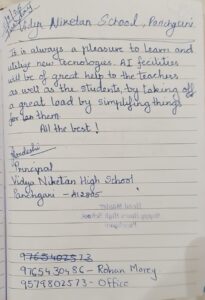 Vidya Niketan School, Panchgani
It is always a pleasure to learn and
utilize new tecnologies. AI facilities
will be of great help to the teachers
as well as the students, by taking off
a great load by simplifying things
for them.
All the best!
Principal
Vidya Niketan High School
Panchgani - 412805
9765402573
9765430486 - Rohan Morey
9579802573 - Office